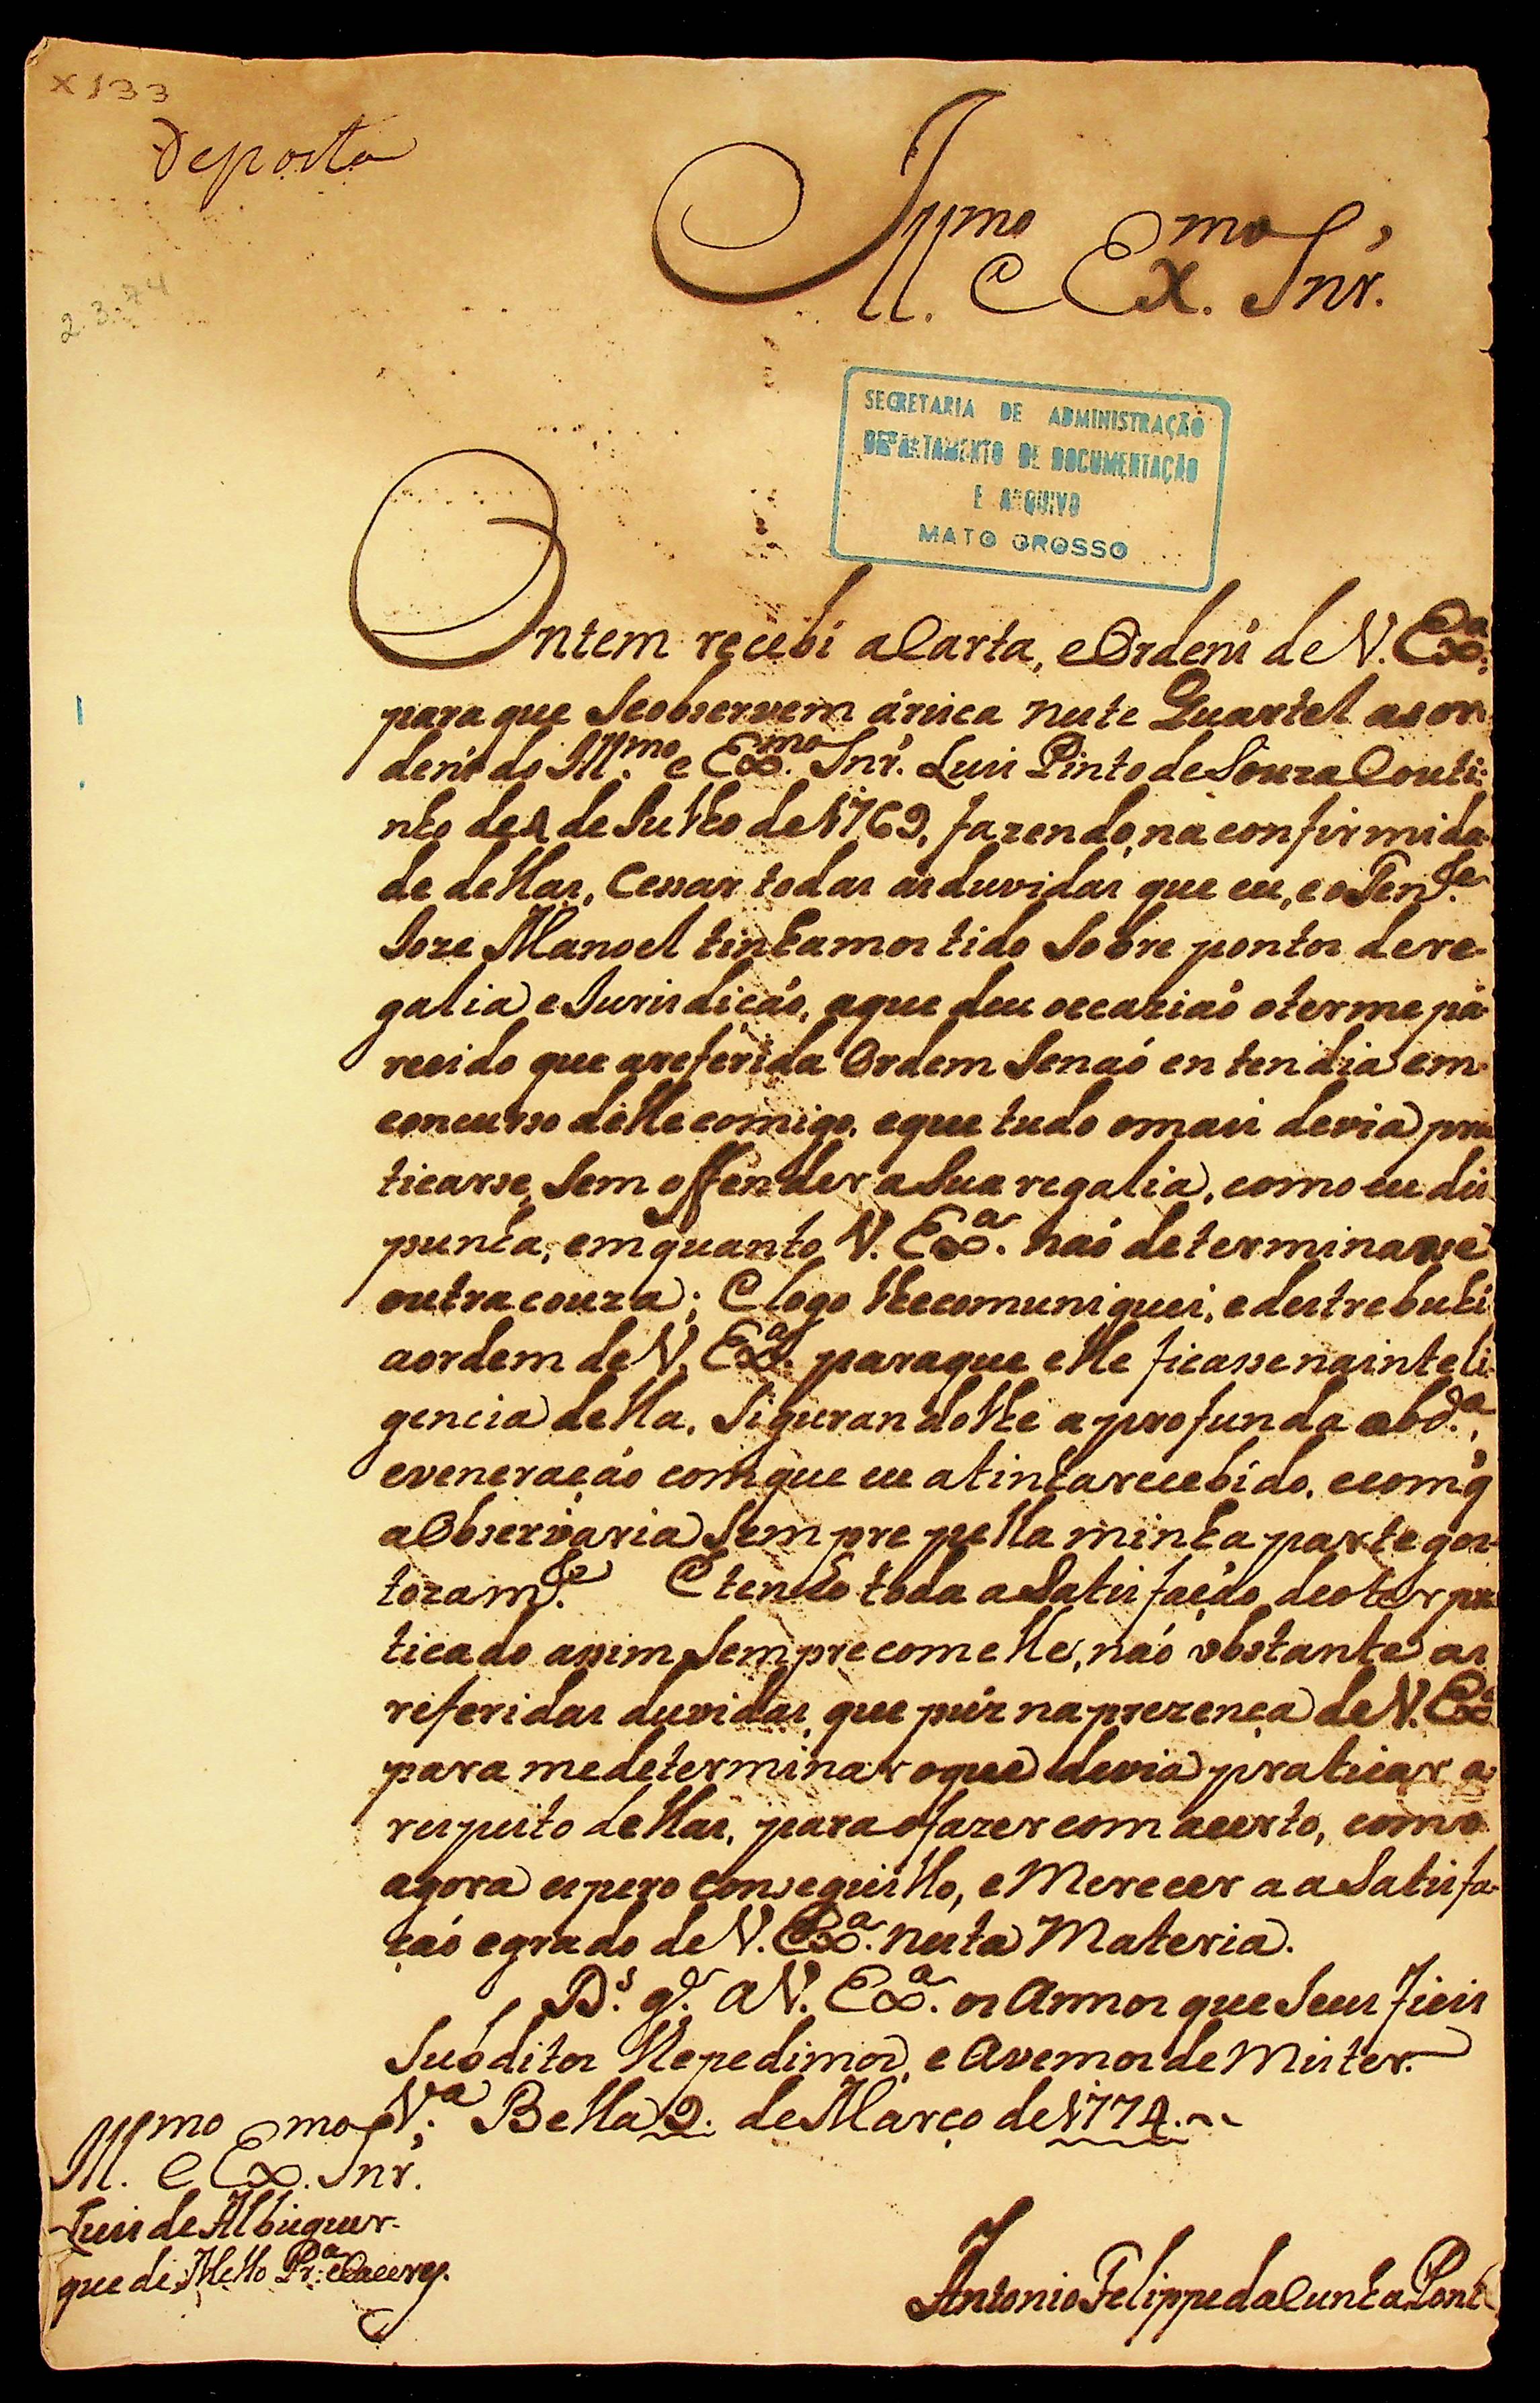 X133
Deposta
Ill.mo e Ex.mo Snr.
2.3.74
SECRETARIA DE ADMINISTRAÇÃO
DEPARTAMENTO DE DOCUMENTAÇÃO
E ARQUIVO
MATO GROSSO
Ontem recebi aCarta, eOrdeñs de V. Exa.
para que Seobservem árisca neste Quartel as or
deñs do Ill.mo e Ex.mo Snr. Luis Pinto de Souza Couti:
nho de 1 de Julho de 1769, fazendo, na confirmida
de dellas, Cessar todas as duvidas que eu, e o Ten.te
Joze Manoel tinhamos tido Sobre pontos de re-
galia e Jurisdicáo, aque deu occaziaó oterme pa-
recido que areferida Ordem Senaó entendia em
concurso delle comigo, eque tudo omais devia pra
ticarse, Sem offender a Sua regalia, como eu dis
punha, emquanto V. Exa. naó determinasse
outra couza; E logo lhecomuniquei, e destrebuhi
aordem de V. Exa. paraque elle ficasse nainteli
gencia della, Sigurandolhe a profunda obd.a,
eveneraçáo comque eu atinharecebido, ecom q̃
aObservaria Sempre pella minha parte gos-
tozam.te E tendo toda a Satisfaçáo deoter pra
ticado assim Sempre comelle, naó obstante as
referidas duvidas, que púz naprezença de V. Exa
para medeterminar oque devia praticar a
respeito dellas, para ofazer com acerto, como
agora espero conseguillo, e Merecer a a Satisfa-
çaó egrado de V. Exa. nesta Materia.
D.s g.de a V. Exa. os Annos que Seus fieis
Subditos lhepedimos, e Avemos de Mister.
V.a Bella 2. de Março de 1774.
Ill.mo e Ex.mo Snr.
Luis de Albuquer-
que de Mello Pr.a eCaceres.
Antonio Felippe da Cunha Pont